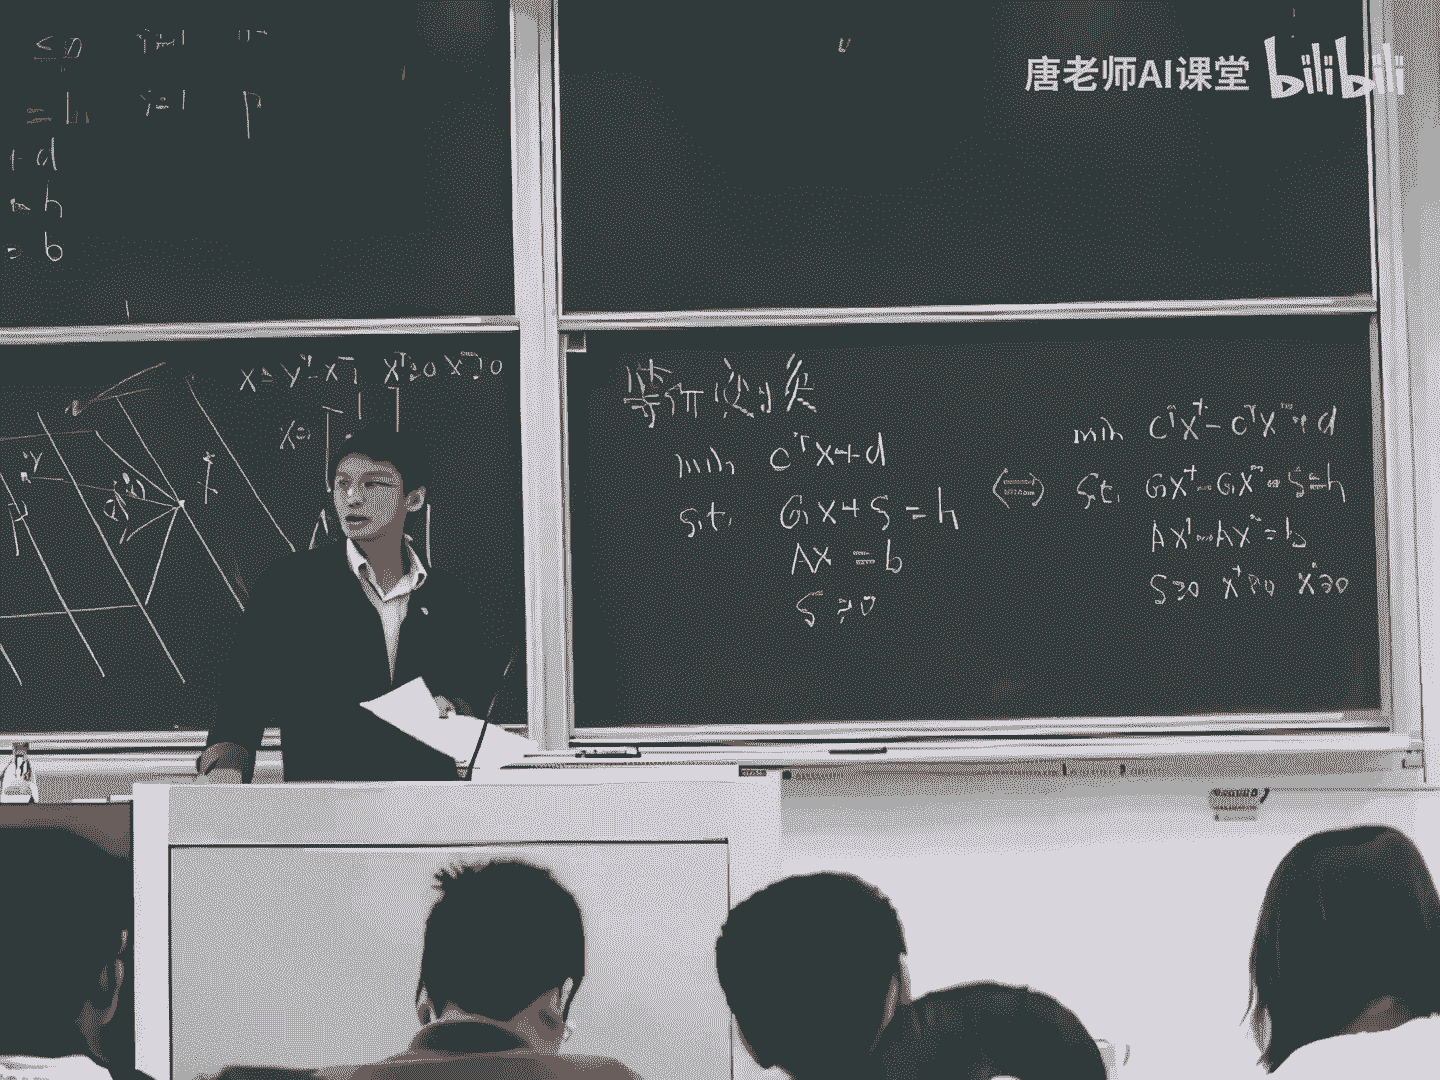 唐老师AI课堂 bilibili
≤ 0 i=1
i=1 p
+ d
= h
= b
x = x⁺ - x⁻, x⁺≥0 x⁻≥0
x=
等价变换
min cᵀx+d
s.t. Gx+s = h
Ax = b
s ≥0
⇔
min cᵀx⁺ - cᵀx⁻ + d
s.t. Gx⁺ - Gx⁻ + s = h
Ax⁺ - Ax⁻ = b
s≥0 x⁺≥0 x⁻≥0